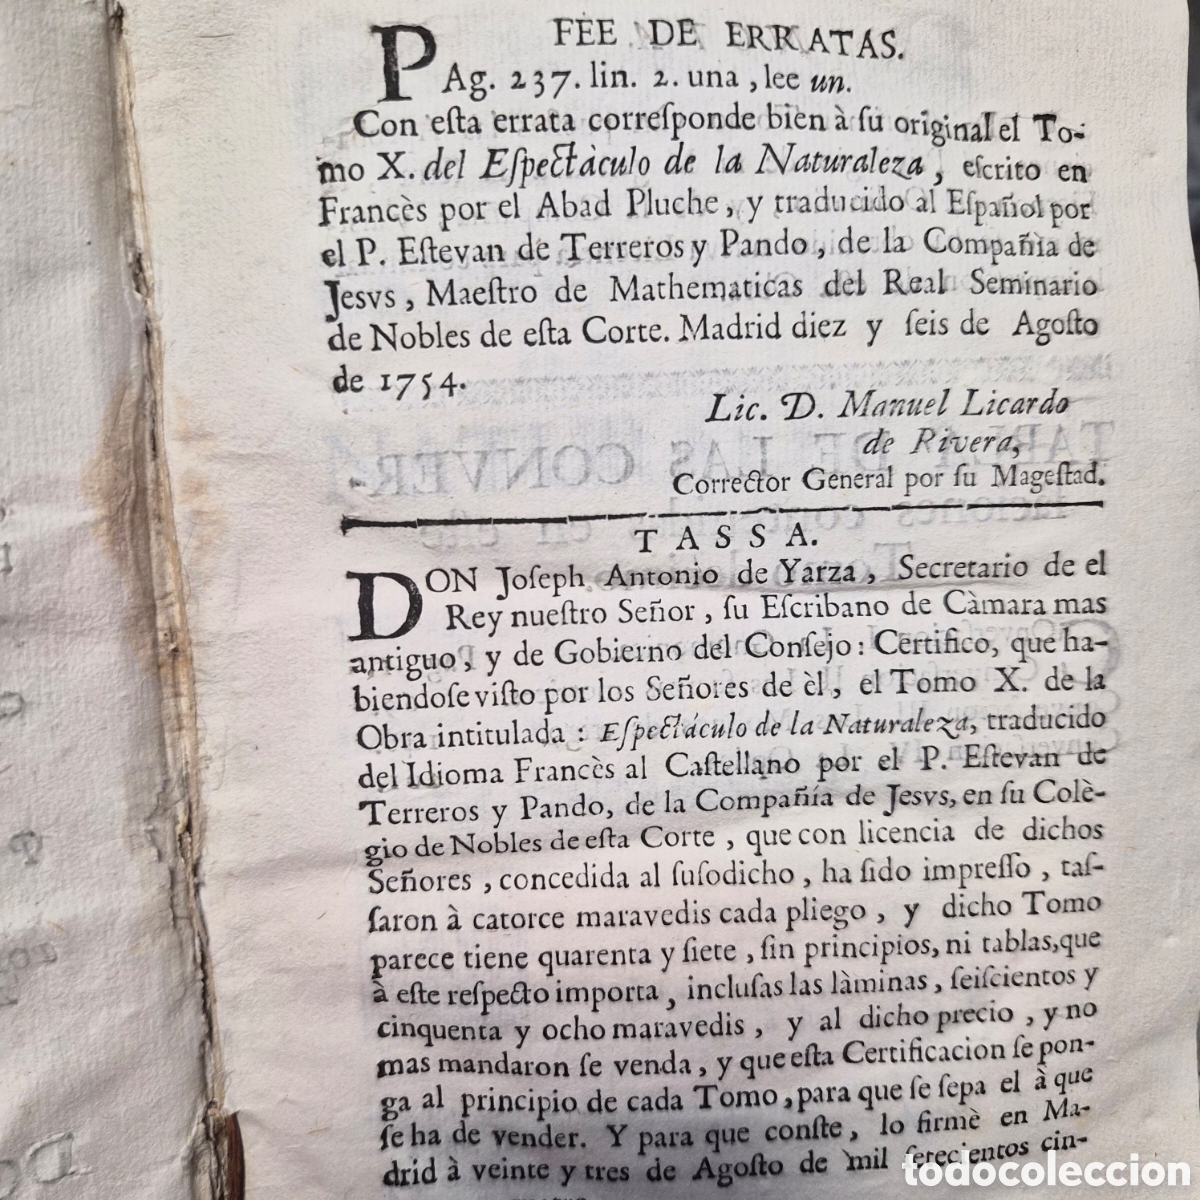 FEE DE ERRATAS.
PAg. 237. lin. 2. una, lee un.
Con eſta errata correſponde bien à ſu original el To-
mo X. del Eſpectàculo de la Naturaleza, eſcrito en
Francès por el Abad Pluche, y traducido al Eſpañol por
el P. Eſtevan de Terreros y Pando, de la Compañìa de
Jesvs, Maeſtro de Mathematicas del Real Seminario
de Nobles de eſta Corte. Madrid diez y ſeis de Agoſto
de 1754.
Lic. D. Manuel Licardo
de Rivera,
Corrector General por ſu Mageſtad.
TASSA.
DON Joſeph Antonio de Yarza, Secretario de el
Rey nueſtro Señor, ſu Eſcribano de Càmara mas
antiguo, y de Gobierno del Conſejo: Certifico, que ha-
biendoſe viſto por los Señores de èl, el Tomo X. de la
Obra intitulada: Eſpectáculo de la Naturaleza, traducido
del Idioma Francès al Caſtellano por el P. Eſtevan de
Terreros y Pando, de la Compañía de Jesvs, en ſu Colè-
gio de Nobles de eſta Corte, que con licencia de dichos
Señores, concedida al ſuſodicho, ha ſido impreſſo, taſ-
ſaron à catorce maravedis cada pliego, y dicho Tomo
parece tiene quarenta y ſiete, ſin principios, ni tablas, que
à eſte reſpecto importa, incluſas las làminas, ſeiſcientos y
cinquenta y ocho maravedis, y al dicho precio, y no
mas mandaron ſe venda, y que eſta Certificacion ſe pon-
ga al principio de cada Tomo, para que ſe ſepa el à que
ſe ha de vender. Y para que conſte, lo firmè en Ma-
drid à veinte y tres de Agoſto de mil ſetecientos cin-
todocoleccion